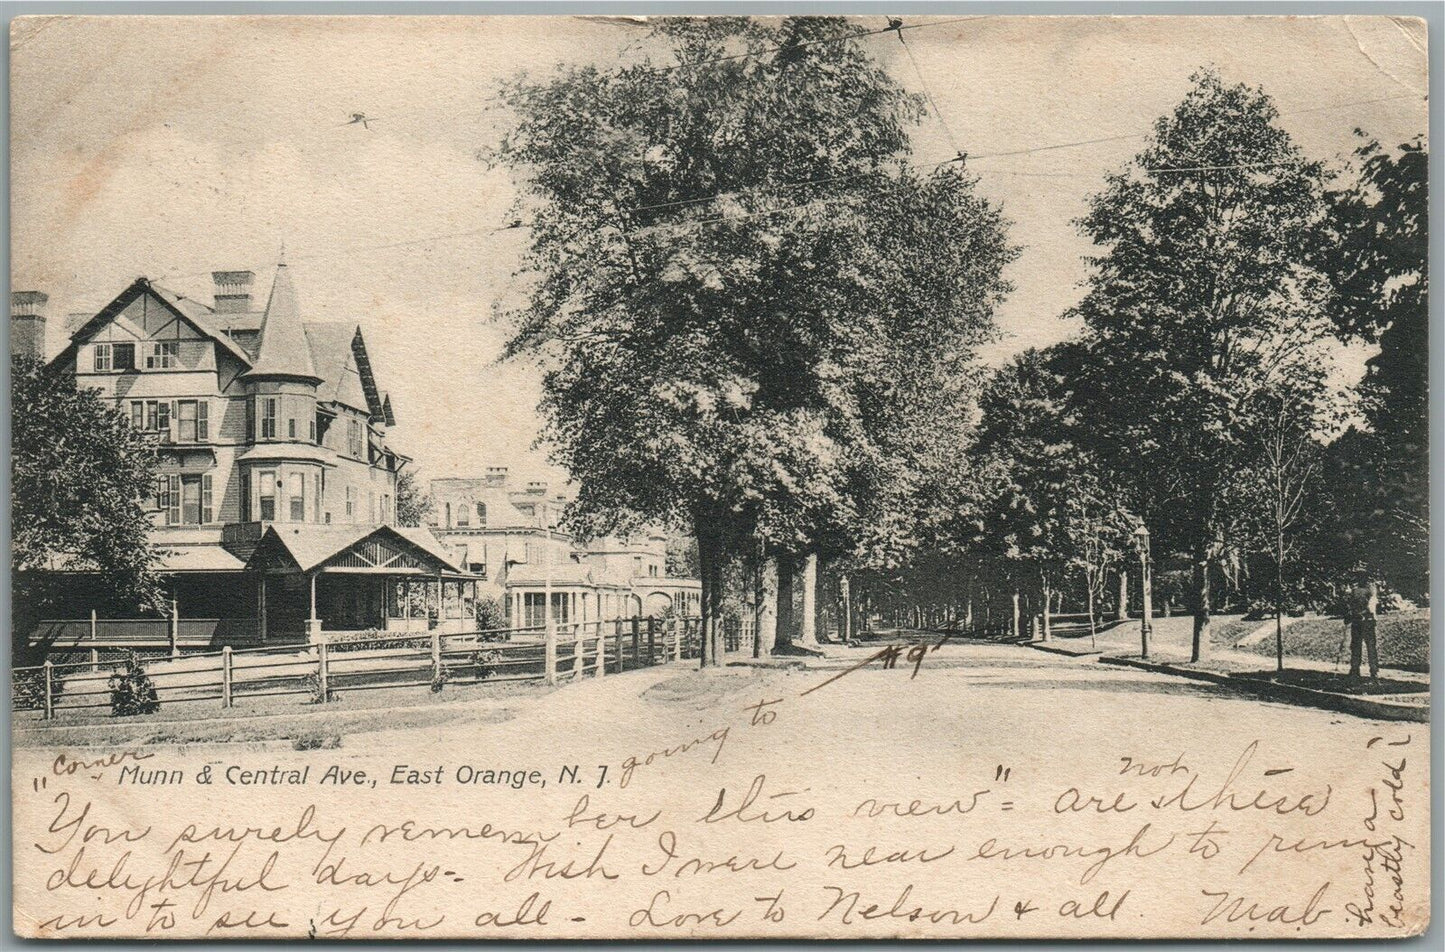 #9
going to
"Corner Munn & Central Ave., East Orange, N. J.
You surely remember this view" = are not these
delightful days - Wish I were near enough to run
in to see you all - Love to Nelson & all. M.a.b
have a
beastly cold!